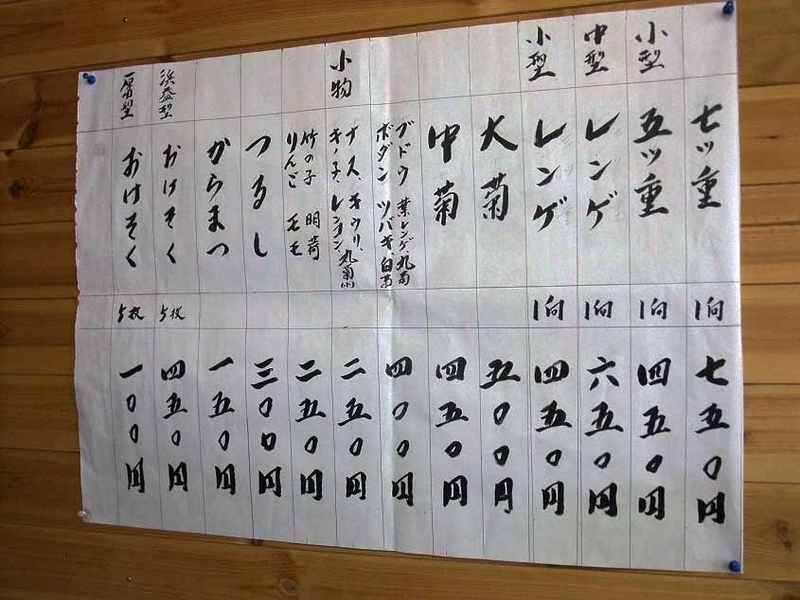 七ッ重 1向 七五〇円
小型 五ッ重 1向 四五〇円
中型 レンゲ 1向 六五〇円
小型 レンゲ 1向 四五〇円
大菊 五〇〇円
中菊 四五〇円
ブドウ 葉レンゲ、丸菊
ボダン ツバキ、白菊 四〇〇円
小物 ナス キウリ、
キノ子、レンコン、丸菊小 二五〇円
竹の子
りんご モモ 二五〇円
つるし 三〇〇円
からまつ 一五〇円
浜益型 おけそく 5枚 四五〇円
おけそく 5枚 一〇〇円